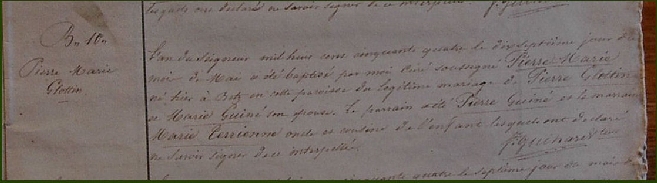 declaré ne savoir signer de ce interpellé
Bn. 18n
Pierre Marie
Glottin
L'an du seigneur mil huit cent cinquante quatre le dix septième jour du
moi de Mai a été baptisé par moi curé soussigné Pierre Marie
né hier à en cette paroisse du légitime mariage de Pierre Glottin
et Marie Guiné son épouse. le parrain a été Pierre Guiné et la marraine
Marie Terrienne oncle et cousine de l'enfant lesquels ont declaré
ne savoir signer de ce interpellé. f. Guihard
cinquante quatre le septième jour du moi de